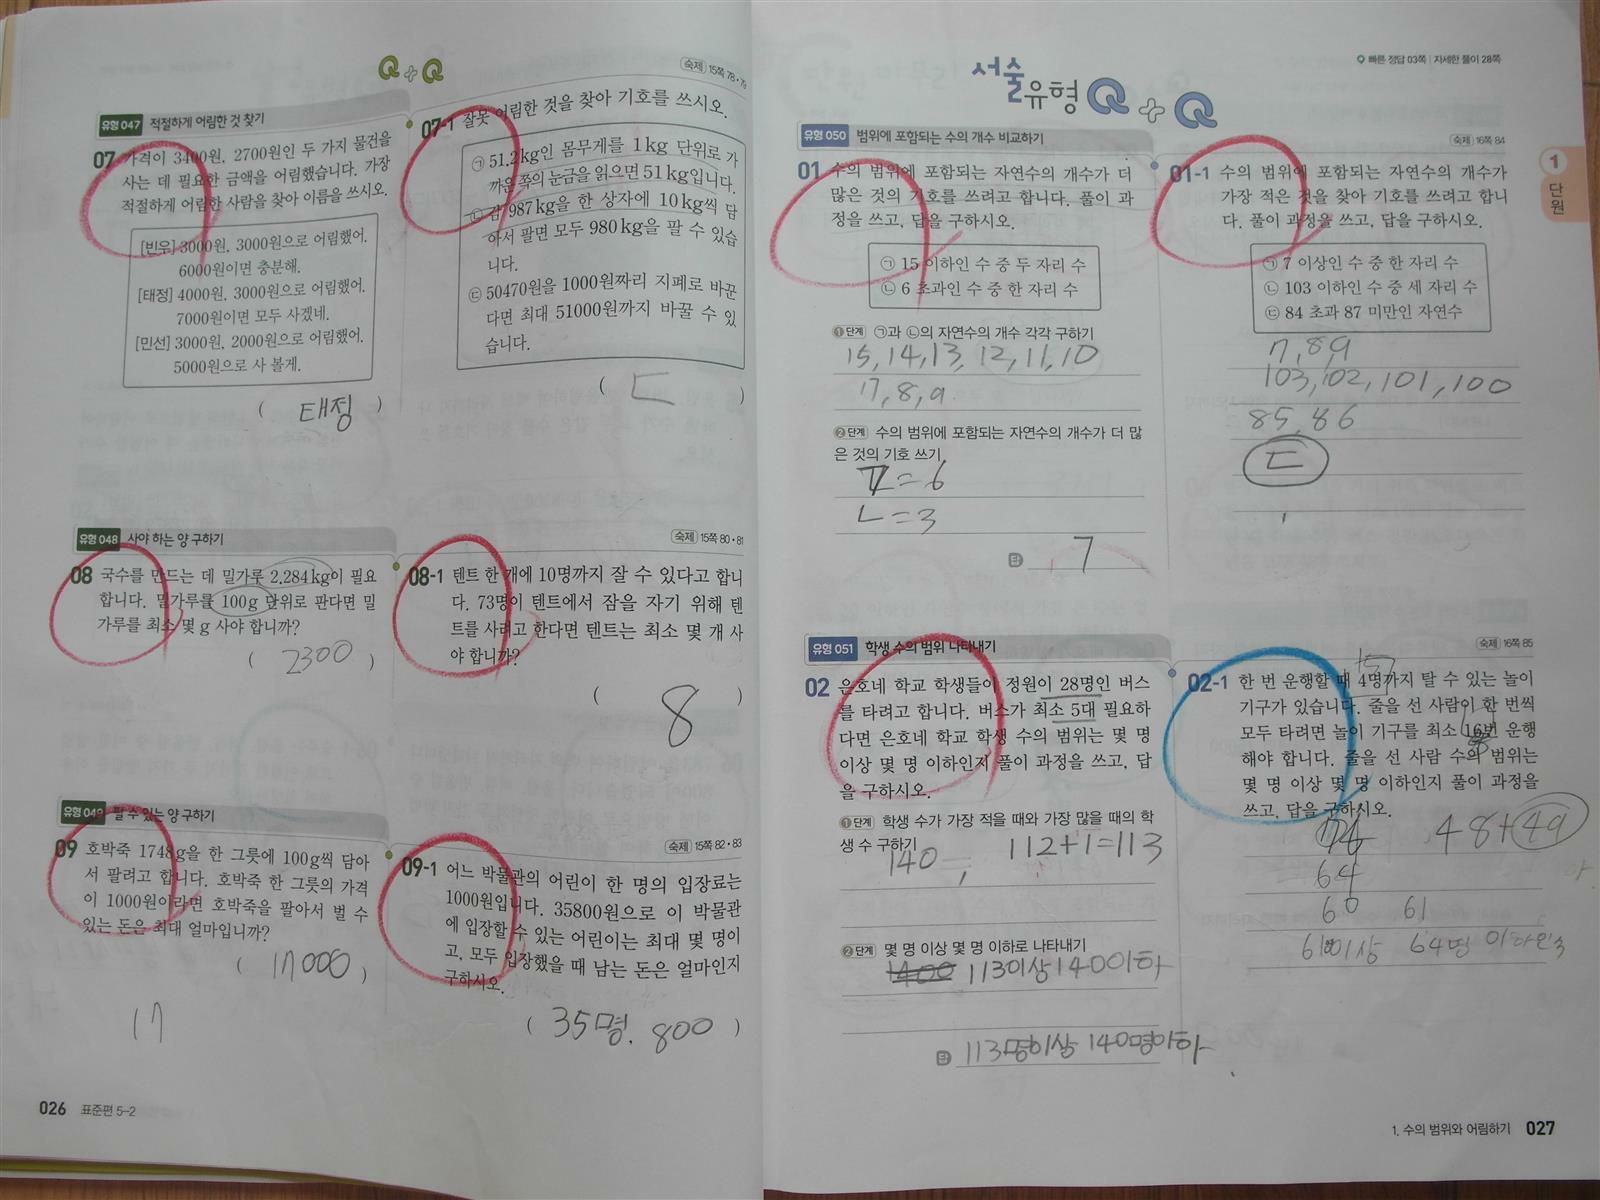 Q+Q
숙제 15쪽 78·79
유형 047 적절하게 어림한 것 찾기
07 가격이 3400원, 2700원인 두 가지 물건을
사는 데 필요한 금액을 어림했습니다. 가장
적절하게 어림한 사람을 찾아 이름을 쓰시오.
[빈우] 3000원, 3000원으로 어림했어.
6000원이면 충분해.
[태정] 4000원, 3000원으로 어림했어.
7000원이면 모두 사겠네.
[민선] 3000원, 2000원으로 어림했어.
5000원으로 사 볼게.
( 태정 )
07-1 잘못 어림한 것을 찾아 기호를 쓰시오.
㉠ 51.2kg인 몸무게를 1kg 단위로 가
까운 쪽의 눈금을 읽으면 51kg입니다.
㉡ 감 987kg을 한 상자에 10kg씩 담
아서 팔면 모두 980kg을 팔 수 있습
니다.
㉢ 50470원을 1000원짜리 지폐로 바꾼
다면 최대 51000원까지 바꿀 수 있
습니다.
( ㄷ )
유형 048 사야 하는 양 구하기
숙제 15쪽 80·81
08 국수를 만드는 데 밀가루 2.284kg이 필요
합니다. 밀가루를 100g 단위로 판다면 밀
가루를 최소 몇 g 사야 합니까?
( 2300 )
08-1 텐트 한 개에 10명까지 잘 수 있다고 합니
다. 73명이 텐트에서 잠을 자기 위해 텐
트를 사려고 한다면 텐트는 최소 몇 개 사
야 합니까?
( 8 )
유형 049 팔 수 있는 양 구하기
숙제 15쪽 82·83
09 호박죽 1748g을 한 그릇에 100g씩 담아
서 팔려고 합니다. 호박죽 한 그릇의 가격
이 1000원이라면 호박죽을 팔아서 벌 수
있는 돈은 최대 얼마입니까?
( 17000 )
17
09-1 어느 박물관의 어린이 한 명의 입장료는
1000원입니다. 35800원으로 이 박물관
에 입장할 수 있는 어린이는 최대 몇 명이
고, 모두 입장했을 때 남는 돈은 얼마인지
구하시오.
( 35명. 800 )
026 표준편 5-2
빠른 정답 03쪽 | 자세한 풀이 28쪽
서술유형 Q+Q
1
단원
유형 050 범위에 포함되는 수의 개수 비교하기
숙제 16쪽 84
01 수의 범위에 포함되는 자연수의 개수가 더
많은 것의 기호를 쓰려고 합니다. 풀이 과
정을 쓰고, 답을 구하시오.
㉠ 15 이하인 수 중 두 자리 수
㉡ 6 초과인 수 중 한 자리 수
❶단계 ㉠과 ㉡의 자연수의 개수 각각 구하기
15, 14, 13, 12, 11, 10
7, 8, 9
❷단계 수의 범위에 포함되는 자연수의 개수가 더 많
은 것의 기호 쓰기
=6
ㄴ=3
답 ㄱ
01-1 수의 범위에 포함되는 자연수의 개수가
가장 적은 것을 찾아 기호를 쓰려고 합니
다. 풀이 과정을 쓰고, 답을 구하시오.
㉠ 7 이상인 수 중 한 자리 수
㉡ 103 이하인 수 중 세 자리 수
㉢ 84 초과 87 미만인 자연수
7, 8, 9
103, 102, 101, 100
85, 86
ㄷ
유형 051 학생 수의 범위 나타내기
숙제 16쪽 85
02 은호네 학교 학생들이 정원이 28명인 버스
를 타려고 합니다. 버스가 최소 5대 필요하
다면 은호네 학교 학생 수의 범위는 몇 명
이상 몇 명 이하인지 풀이 과정을 쓰고, 답
을 구하시오.
❶단계 학생 수가 가장 적을 때와 가장 많을 때의 학
생 수 구하기
140, 112+1=113
❷단계 몇 명 이상 몇 명 이하로 나타내기
1400 113이상 140이하
답 113명이상 140명이하
02-1 한 번 운행할 때 4명까지 탈 수 있는 놀이
기구가 있습니다. 줄을 선 사람이 한 번씩
모두 타려면 놀이 기구를 최소 16번 운행
해야 합니다. 줄을 선 사람 수의 범위는
몇 명 이상 몇 명 이하인지 풀이 과정을
쓰고, 답을 구하시오.
48+49
64
60 61
이상 64명 이하
1. 수의 범위와 어림하기 027